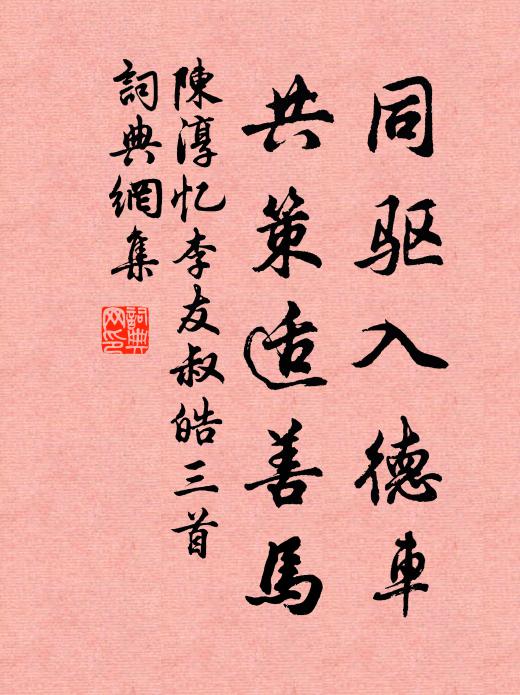 同驱入德車
共策适善馬
陳淳忆李友叔皓三首
詞典網集
詞典网印